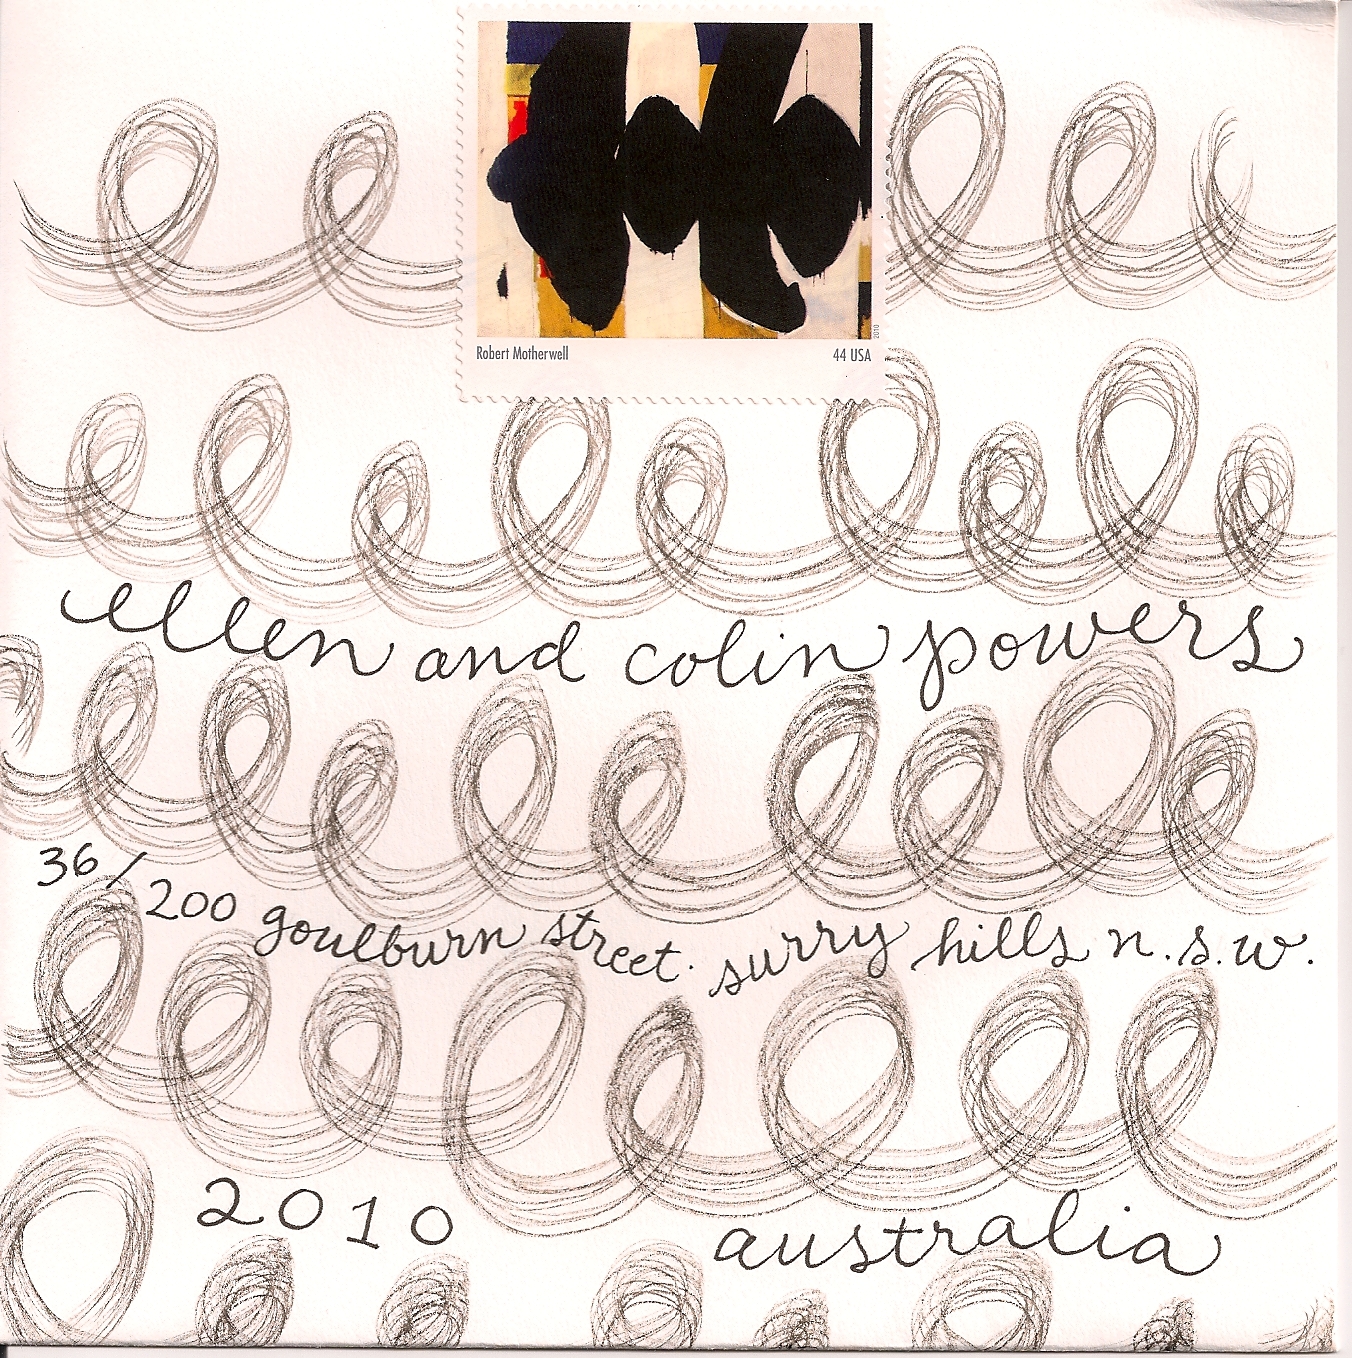 2010
Robert Motherwell 44 USA
ellen and colin powers
36/200 goulburn street. surry hills n.s.w.
2010 australia